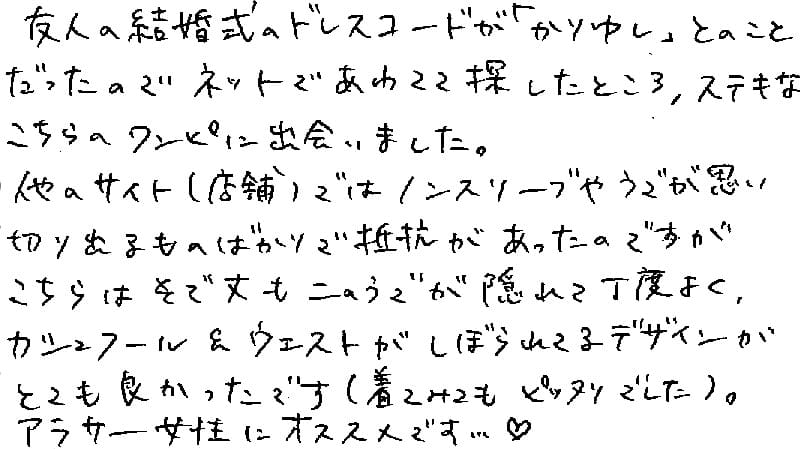 友人の結婚式のドレスコードが「かりゆし」とのこと
だったので ネットであわてて探したところ,ステキな
こちらのワンピに出会いました。
他のサイト(店舗)ではノンスリーブやうでが思い
切り出るものばかりで抵抗があったのですが
こちらはそで丈も二のうでが隠れて丁度よく,
カシュクール&ウエストがしぼられてるデザインが
とても良かったです(着てみてもピッタリでした)。
アラサー女性にオススメです…♡